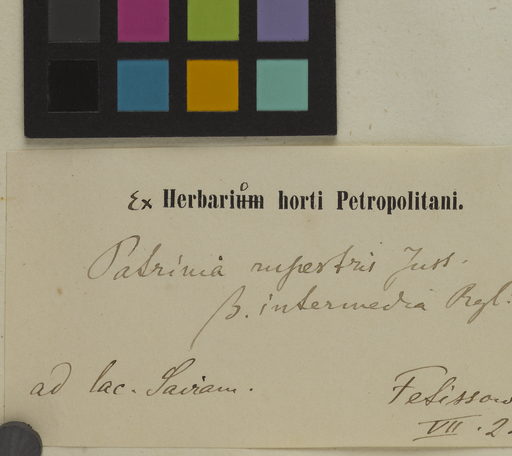 Ex Herbario horti Petropolitani.
Patrinia rupestris Juss.
β. intermedia Rgl.
ad lac. Sairam.
Fetissow
VII. 2